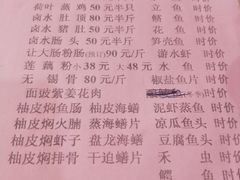 荷叶蒸鸡50元半只 立鱼 时价
卤水肚顶80元/半斤 鱼 时价
卤水猪肚50元/半斤 鱼 时价
卤水肠头50元/半斤 笋壳鱼 时价
让大肠粉肠90元/斤 游水虾 时价
莲藕粉小38元大48元 水鱼 时价
无锡骨80元/斤 椒盐鱼片 时价
面豉紫姜花肉
柚皮焖鱼肠 柚皮海鳝 泥虾蒸鱼 时价
柚皮焖火腩 蒸海鳝片 凉瓜鱼头 时价
柚皮焖虾子 盘龙海鳝 豆腐鱼头 时价
柚皮焖排骨 干迫鳝片 禾虫 时价
鳄鱼 时价